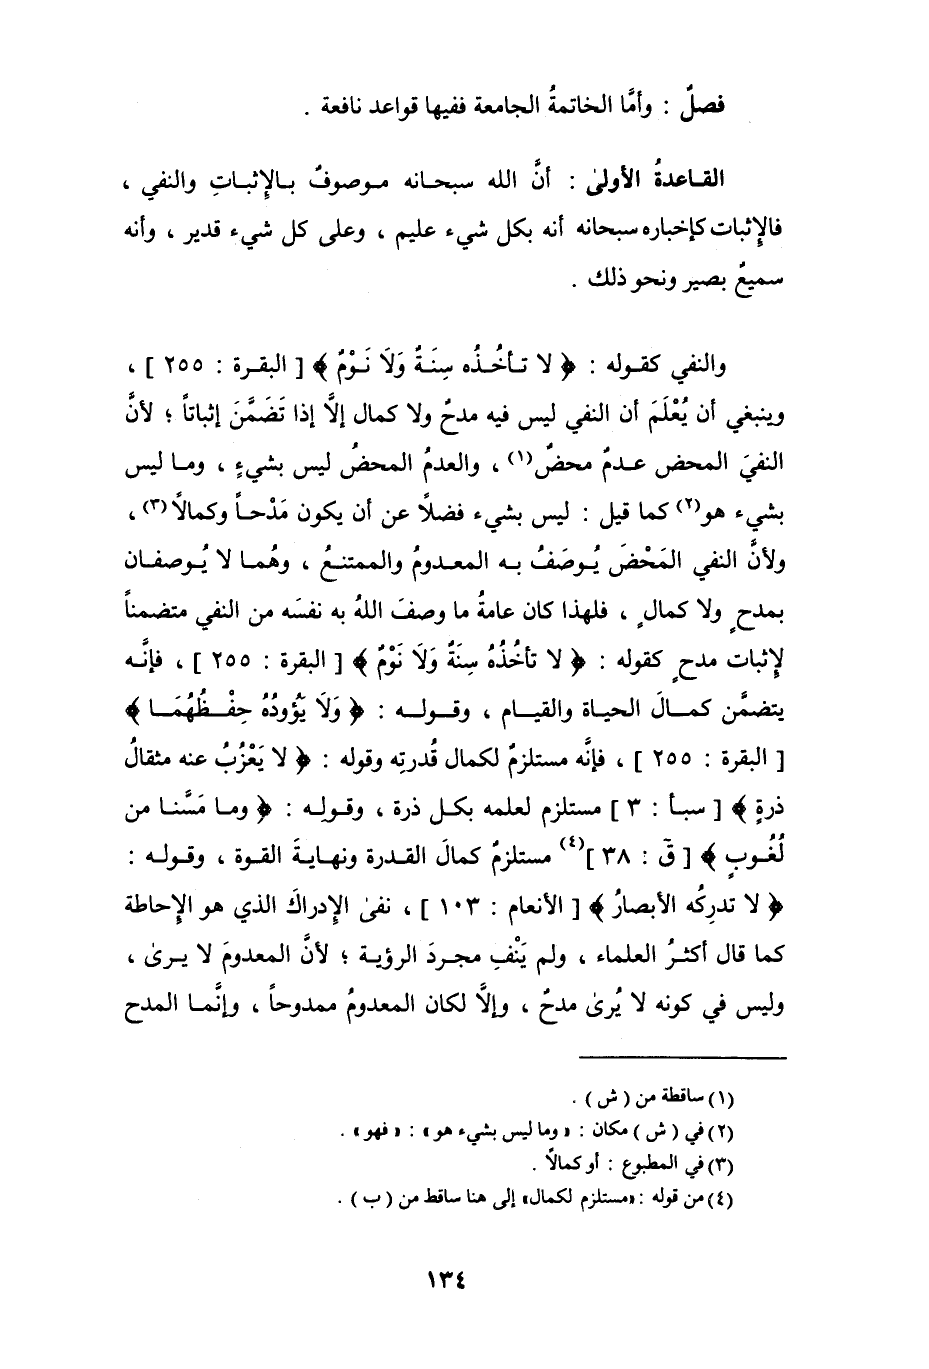 فصلٌ : وأمَّا الخاتمةُ الجامعة ففيها قواعد نافعة .
القاعدةُ الأولىٰ : أنَّ الله سبحانه موصوفٌ بالإِثباتِ والنفي ،
فالإِثبات كإخباره سبحانه أنه بكل شيء عليم ، وعلى كل شيء قدير ، وأنه
سميعٌ بصير ونحو ذلك .
والنفي كقوله : ﴿ لا تأخُذُه سِنَةٌ وَلَا نَوْمٌ ﴾ [ البقرة : ٢٥٥ ] ،
وينبغي أن يُعْلَمَ أن النفي ليس فيه مدحٌ ولا كمال إلَّا إذا تَضَمَّنَ إثباتاً ؛ لأنَّ
النفيَ المحض عدمٌ محضٌ(١) ، والعدمُ المحضُ ليس بشيءٍ ، وما ليس
بشيء هو(٢) كما قيل : ليس بشيء فضلًا عن أن يكون مَدْحاً وكمالًا(٣) ،
ولأنَّ النفي المَحْضَ يُوصَفُ به المعدومُ والممتنعُ ، وهُما لا يُوصفان
بمدحٍ ولا كمالٍ ، فلهذا كان عامةُ ما وصفَ اللهُ به نفسَه من النفي متضمناً
لإِثبات مدحٍ كقوله : ﴿ لا تأخُذُهُ سِنَةٌ وَلَا نَوْمٌ ﴾ [ البقرة : ٢٥٥ ] ، فإنَّه
يتضمَّن كمالَ الحياة والقيام ، وقوله : ﴿ وَلَا يَؤُودُهُ حِفْظُهُمَا ﴾
[ البقرة : ٢٥٥ ] ، فإنَّه مستلزمٌ لكمال قُدرتِه وقوله : ﴿ لا يَعْزُبُ عنه مثقالُ
ذرةٍ ﴾ [ سبأ : ٣ ] مستلزم لعلمه بكل ذرة ، وقوله : ﴿ وما مَسَّنا من
لُغُوبٍ ﴾ [ قۤ : ٣٨ ](٤) مستلزمٌ كمالَ القدرة ونهايةَ القوة ، وقوله :
﴿ لا تدرِكُه الأبصارُ ﴾ [ الأنعام : ١٠٣ ] ، نفىٰ الإِدراكَ الذي هو الإِحاطة
كما قال أكثرُ العلماء ، ولم يَنْفِ مجردَ الرؤية ؛ لأنَّ المعدومَ لا يرىٰ ،
وليس في كونه لا يُرىٰ مدحٌ ، وإلَّا لكان المعدومُ ممدوحاً ، وإنَّما المدح
(١) ساقطة من ( ش ) .
(٢) في ( ش ) مكان : « وما ليس بشيء هو » : « فهو » .
(٣) في المطبوع : أو كمالًا .
(٤) من قوله : «مستلزم لكمال» إلى هنا ساقط من ( ب ) .
١٣٤